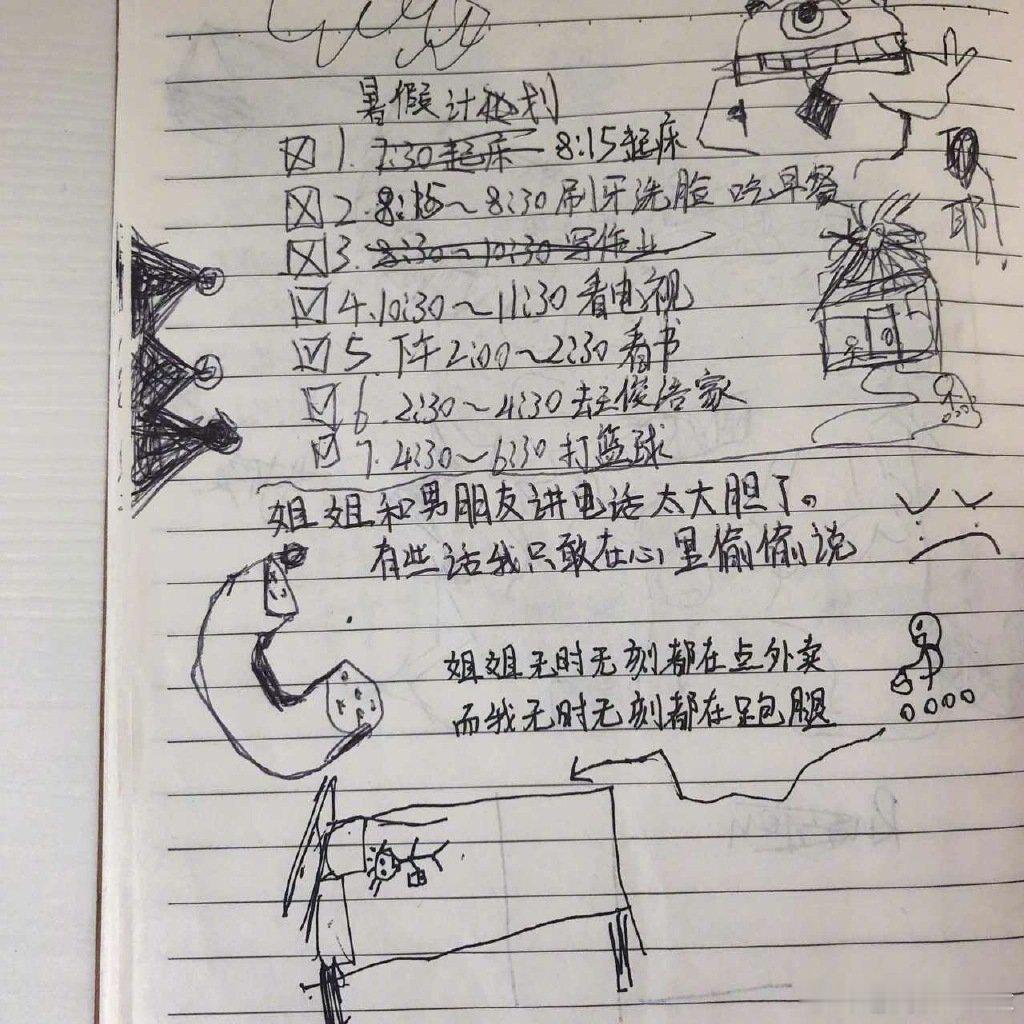 暑假计划
1. 7:30起床 8:15起床
2. 8:15～8:30刷牙洗脸 吃早餐
3. 8:30～10:30写作业
4. 10:30～11:30看电视
5. 下午2:00～2:30看书
6. 2:30～4:30去王俊浩家
7. 4:30～6:30打篮球
耶
姐姐和男朋友讲电话太大胆了。
有些话我只敢在心里偷偷说
姐姐无时无刻都在点外卖
而我无时无刻都在跑腿